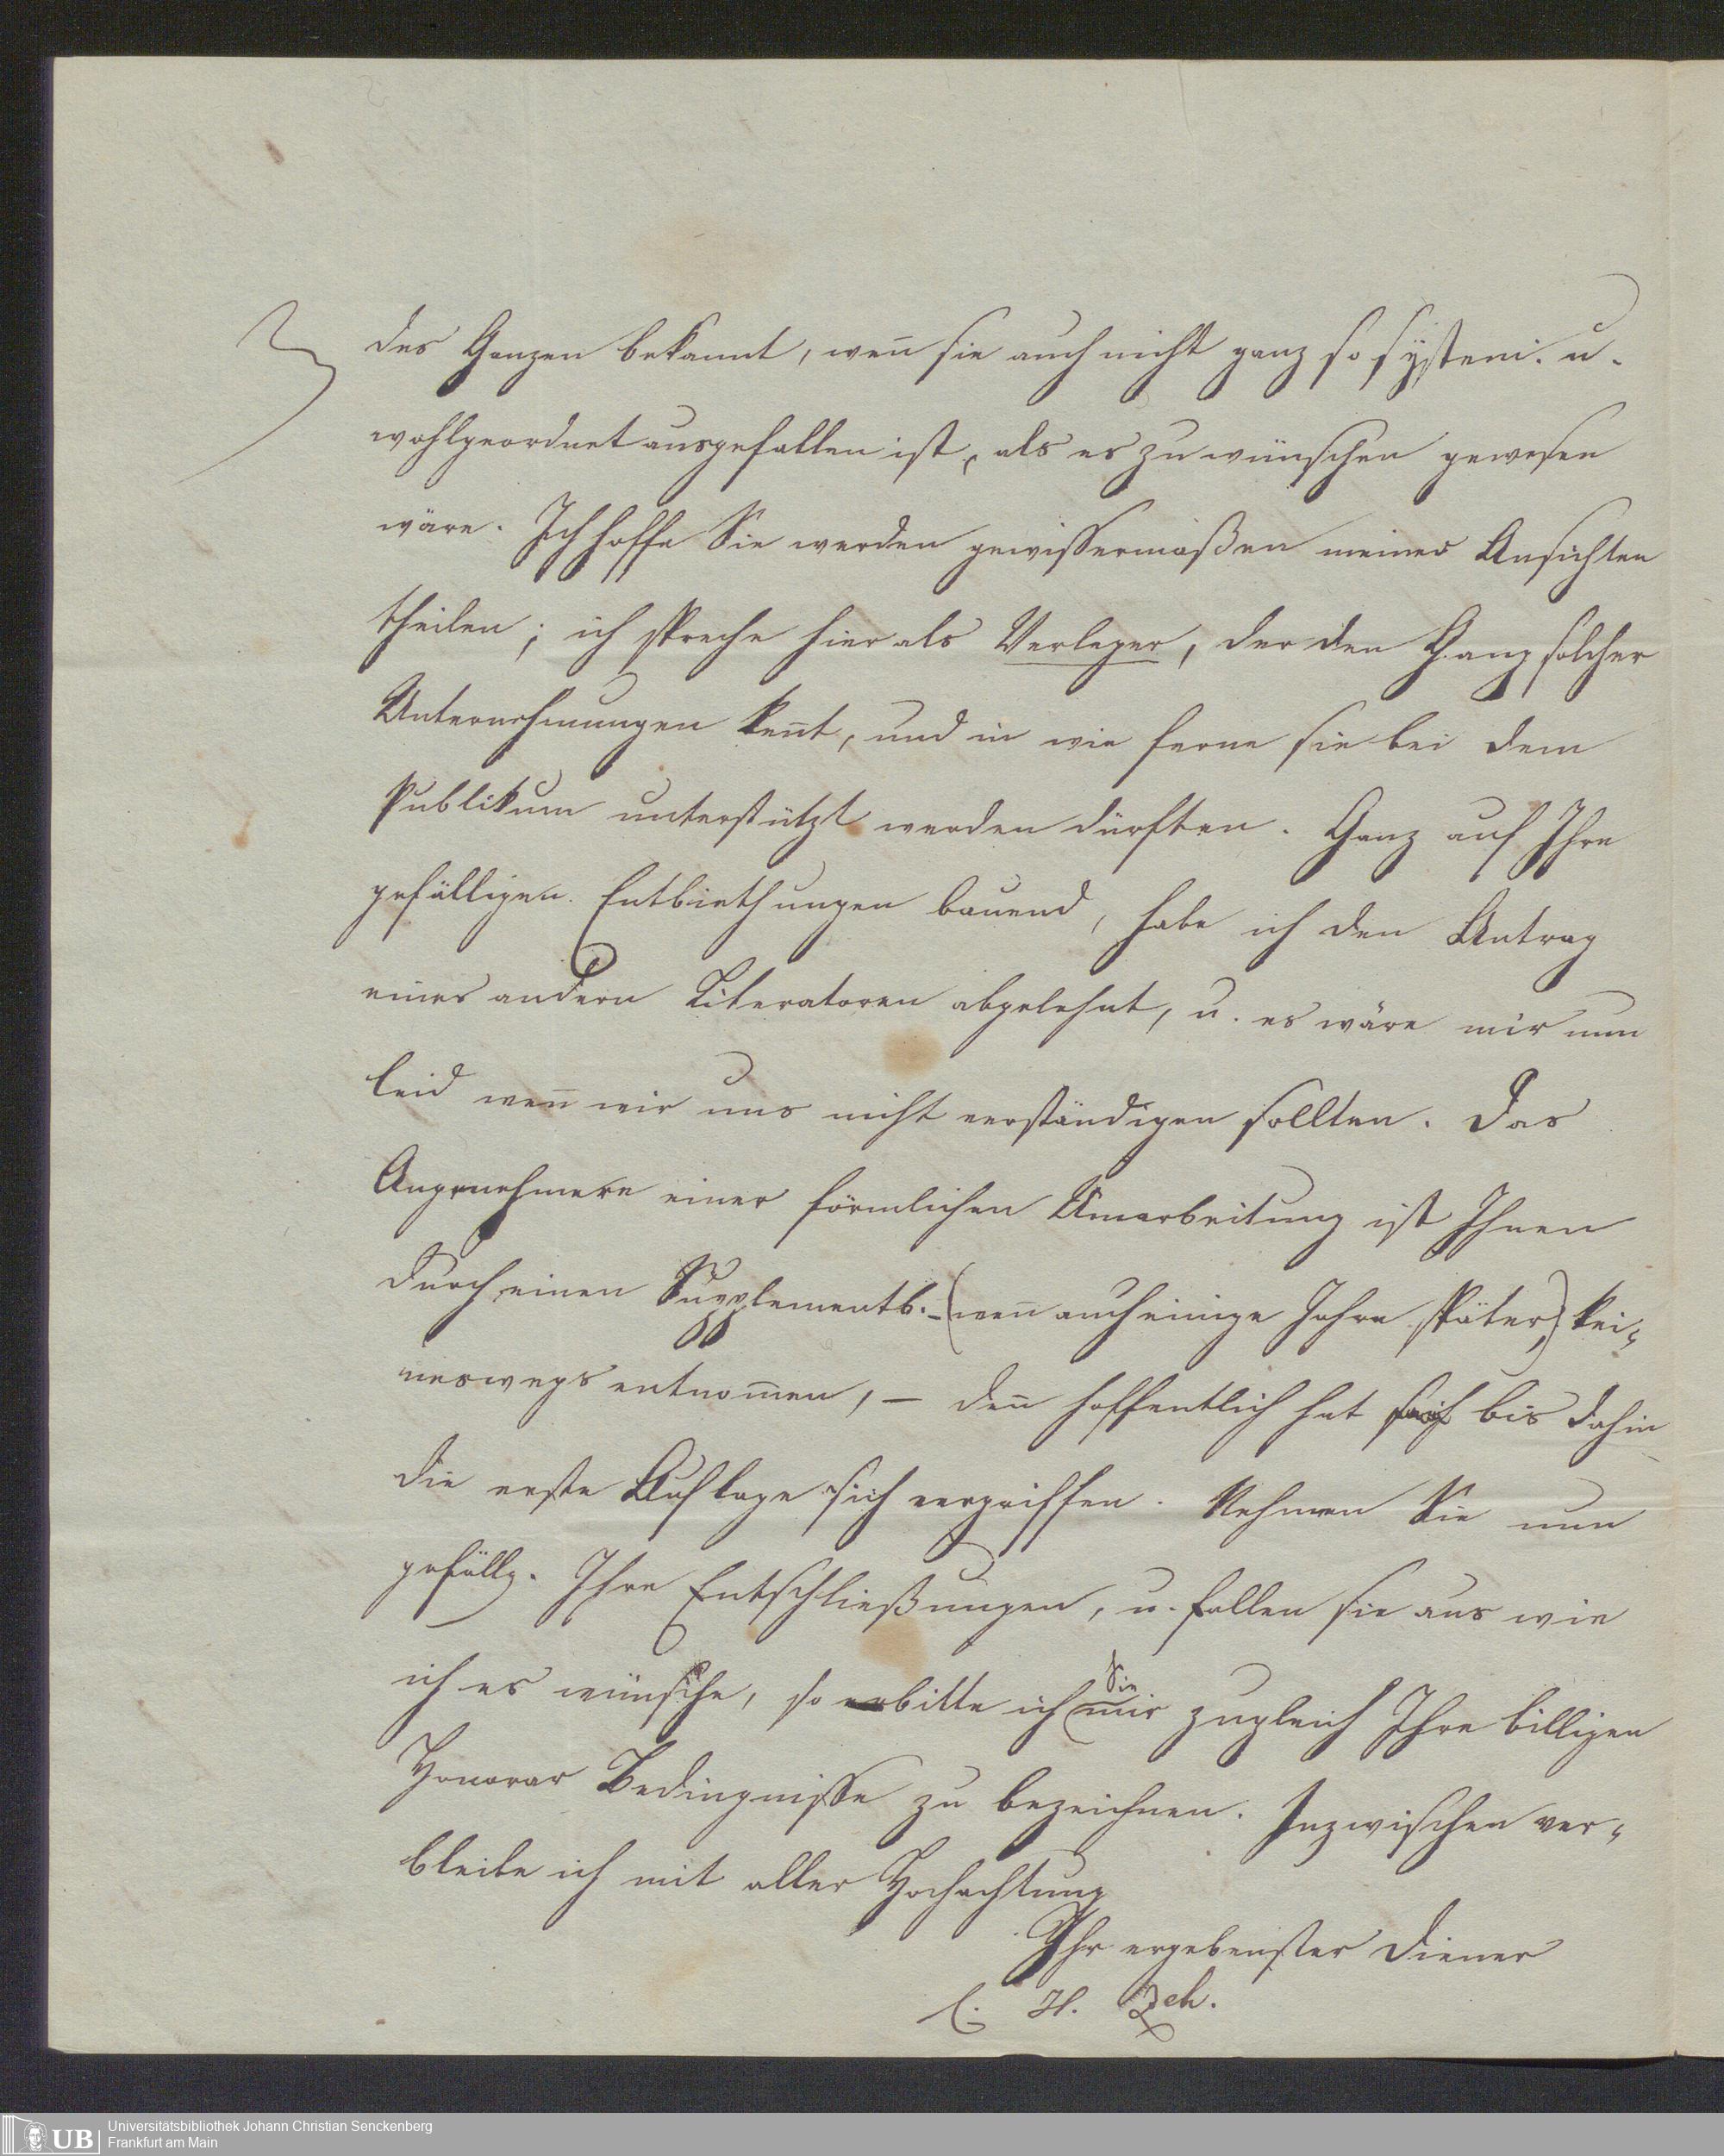 des Ganzen bekannt, wen̅ sie auch nicht ganz so systemi. u.
wohlgeordnet ausgefallen ist, als es zu wünschen gewesen
wäre. Ich hoffe Sie werden gewissermaßen meiner Ansichten
theilen; ich spreche hier als Verleger, der den Gang solcher
Unternehmungen ken̅t, und in wie ferne sie bei dem
Publikum unterstützt werden dürften. Ganz auf Ihre
gefälligen Entbiethungen bauend, habe ich den Antrag
eines andern Literatoren abgelehnt, u. es wäre mir nun
leid wen̅ wir uns nicht verständigen sollten. Das
Angenehmere einer förmlichen Umarbeitung ist Ihnen
durch einen Supplementb. – (wen̅ auch einige Jahre später,) kei-
neswegs entnom̅en, – den̅ hoffentlich hat bis dahin
die erste Auflage sich vergriffen. Nehmen Sie nun
gefällg. Ihre Entschließungen, u. fallen sie aus wie
ich es wünsche, so bitte ich Sie mir zugleich Ihre billigen
Honorar Bedingnisse zu bezeichnen. Inzwischen ver-
bleibe ich mit aller Hochachtung
Ihr ergebenster Diener
C. H. Zeh.
UB
Universitätsbibliothek Johann Christian Senckenberg
Frankfurt am Main